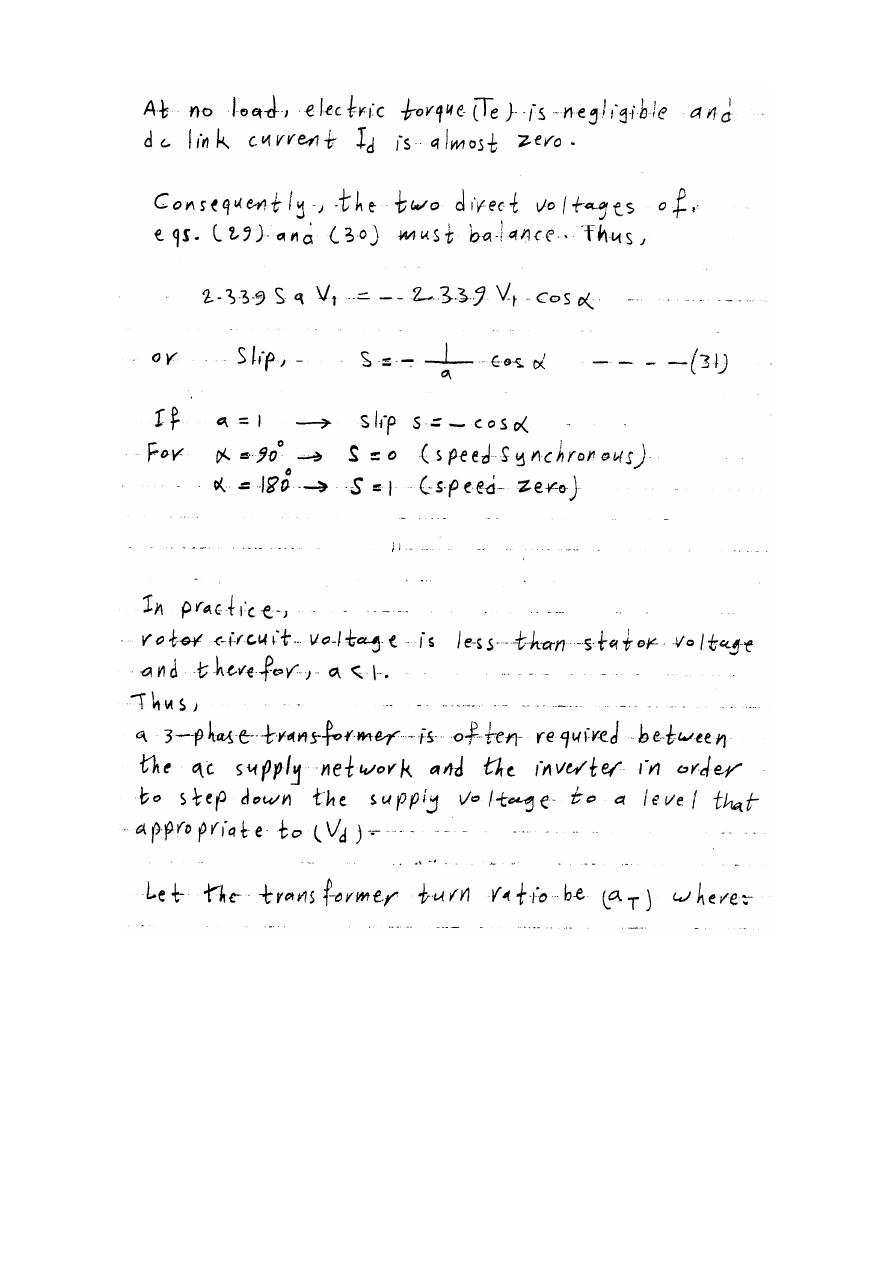 At no load, electric torque (Te) is negligible and
dc link current Id is almost zero.
Consequently, the two direct voltages of
eqs. (29) and (30) must balance. Thus,
2.339 S a V1 = - 2.339 V1 cos α
or Slip, S = - 1/a cos α - - - - (31)
If a = 1 → slip s = - cos α
For α = 90° → S = 0 (speed Synchronous)
α = 180° → S = 1 (speed zero)
In practice,
rotor circuit voltage is less than stator voltage
and therefor, a < 1.
Thus,
a 3-phase transformer is often required between
the ac supply network and the inverter in order
to step down the supply voltage to a level that
appropriate to (Vd).
Let the transformer turn ratio be (aT) where: